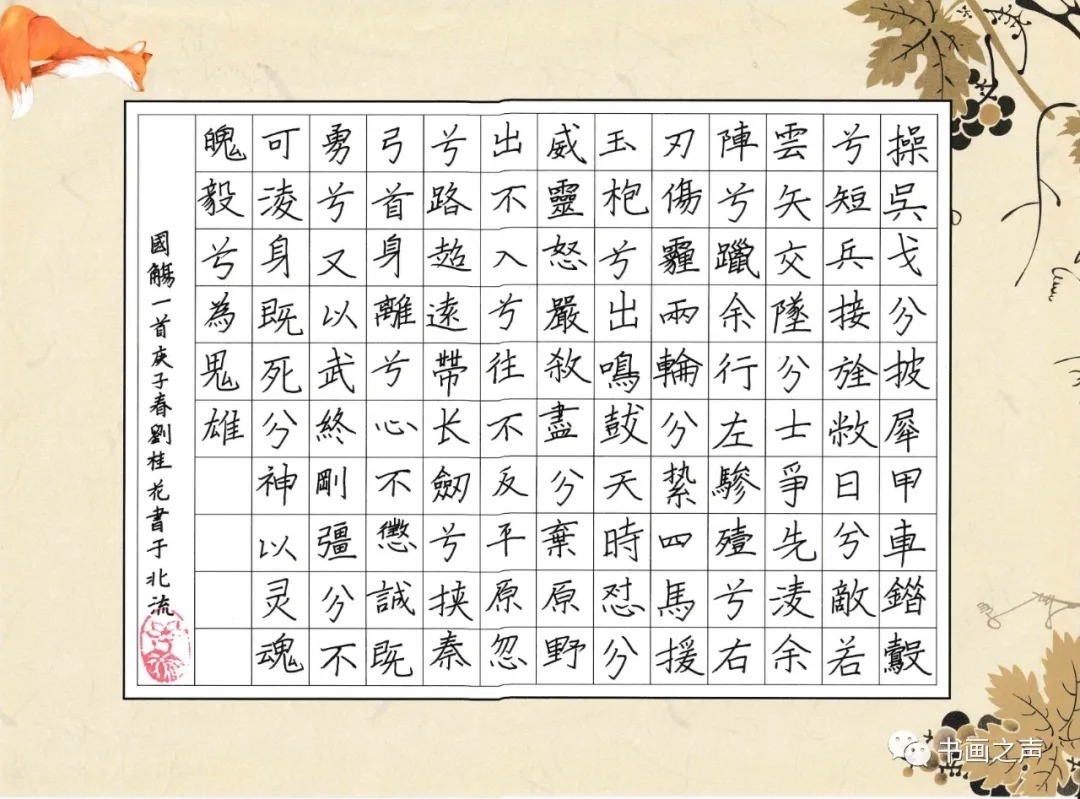 操吳戈兮披犀甲車錯轂
兮短兵接旌敝日兮敵若
雲矢交墜兮士爭先凌余
陣兮躐余行左驂殪兮右
刃傷霾兩輪兮縶四馬援
玉枹兮出鳴鼓天時怼兮
威靈怒嚴殺盡兮棄原野
出不入兮往不反平原忽
兮路超遠帶长劒兮挟秦
弓首身離兮心不懲誠既
勇兮又以武終剛彊兮不
可凌身既死兮神以灵魂
魄毅兮為鬼雄
國觴一首庚子春劉桂花書于北流
书画之声